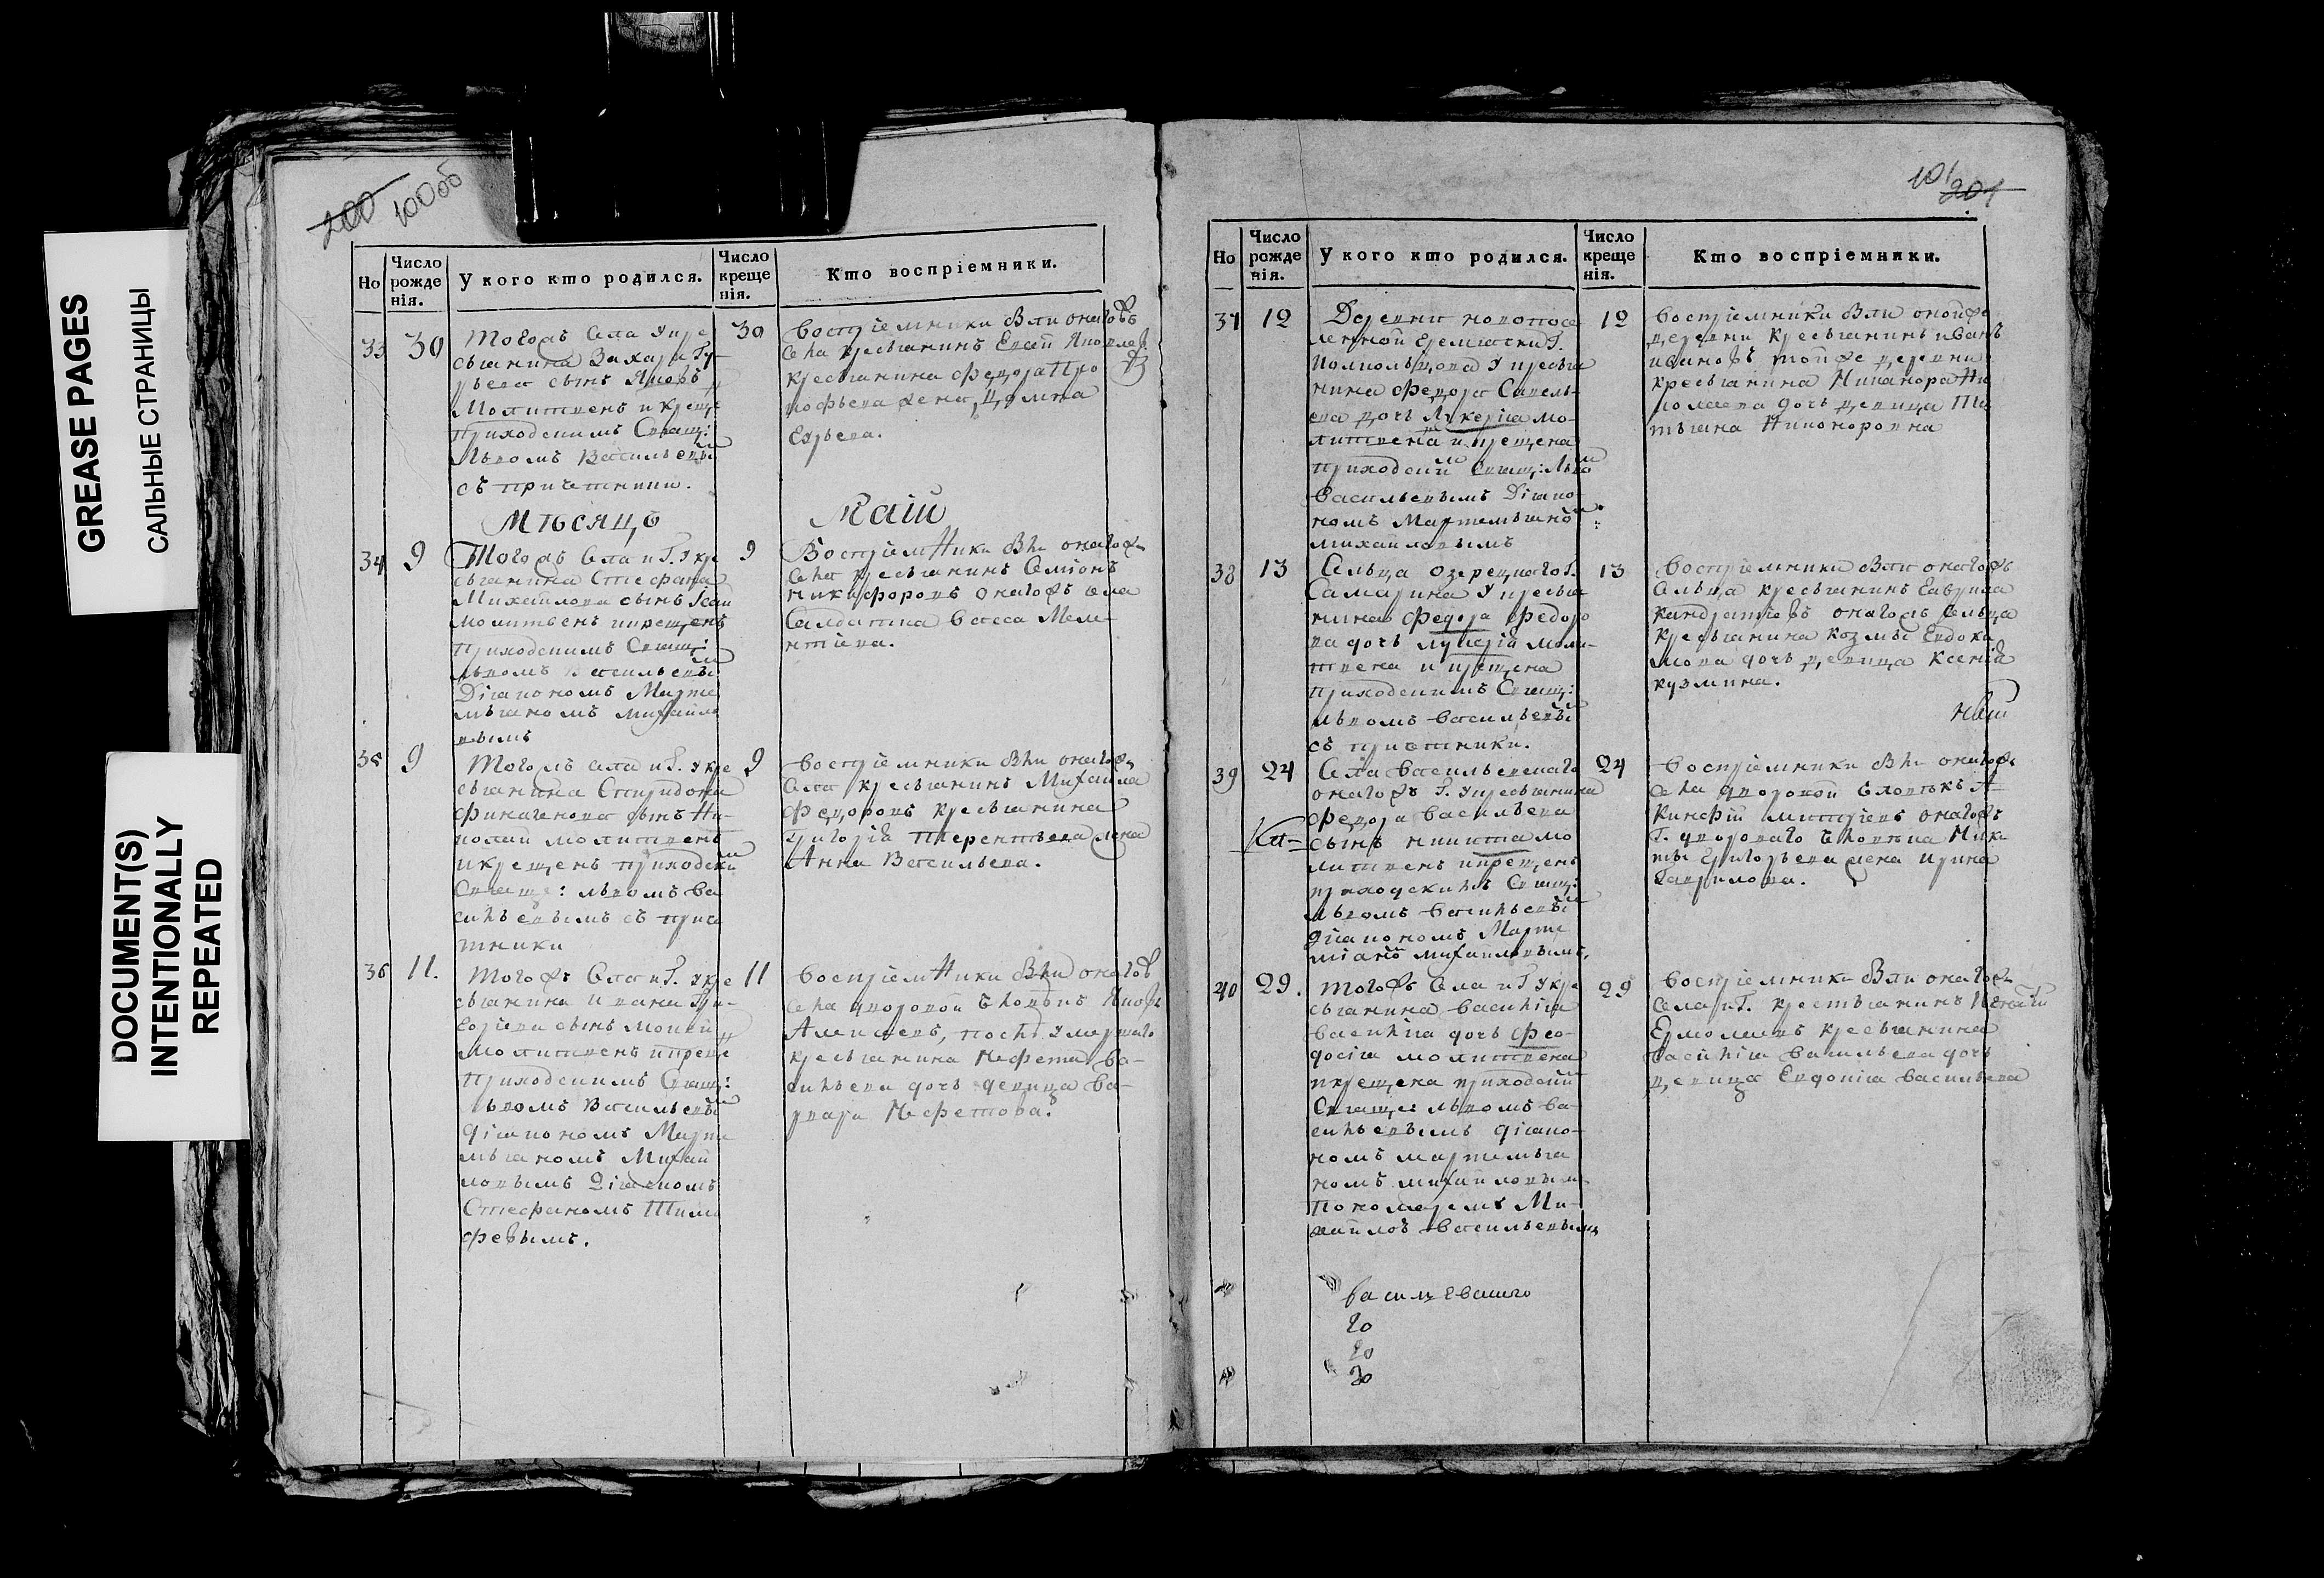 GREASE PAGES
САЛЬНЫЕ СТРАНИЦЫ
DOCUMENT(S)
INTENTIONALLY
REPEATED
200 100об
Но
Число рожде нія.
У кого кто родился.
Число креще нія.
Кто воспріемники.
33 30
Тогожъ села у кре
стьянина Захара Гу
рьева сынъ Яковъ
молитвенъ и крещ:
приходскимъ Свящ:
Львомъ Васильевы
съ причетники.
30
Воспріемники были онагожъ
села крестьянинъ
крестьянина Федора Про
кофьева жена Домна
Мѣсяцъ
Маій
34 9
Тогожъ села и Г. у кре
стьянина Стефана
Михайлова сынъ
молитвенъ и крещенъ
приходскимъ Свящ:
Львомъ Васильевы
Діакономъ Марте
мьяномъ Михайло
вымъ
9
Воспріемники были онагожъ
села крестьянинъ Семіонъ
Никифоровъ онагожъ села
Салдатка Васса
35 9
Тогожъ села и Г. у кре
стьянина Спиридона
сынъ Ни
колай молитвенъ
и крещенъ приходски
Свяще: Львомъ Ва
сильевымъ съ приче
тники
9
Воспріемники были онагожъ
села крестьянинъ Михайла
Федоровъ крестьянина
Григорія Терентьева жена
Анна Васильева.
36 11.
Тогожъ села и Г. у кре
стьянина Ивана Гри-
горіева сынъ Мокей
молитвенъ и креще
приходскимъ Свящ:
Львомъ Васильевы
діакономъ Марте
мьяномъ Михай
ловымъ
Стефаномъ Тимо
февымъ.
11
Воспріемники были онагожъ
села дворовой человѣкъ Яковъ
Алексѣевъ, послѣ умершаго
крестьянина Нефеда Ва-
сильева дочь девица Ва-
рвара Нефетова.
101 201
Но
Число рожде нія.
У кого кто родился.
Число креще нія.
Кто воспріемники.
37 12
Деревни новопосе
ленной Г.
у кресья
нина Федора Савель-
ева дочь Лукерія мо-
литвена и крещена
приходски Свящ: Льво
Васильевымъ Діако-
номъ Мартемьяно
Михайловымъ
12
Воспріемники были онойже
деревни крестьянинъ Иванъ
Ивановъ тойже деревни
крестьянина Никанора Ни
колаева дочь девица Та
тьяна Никонорова
38 13
Сельца Озерецкаго Г.
Самарина у кресья
нина Федора Федоро
ва дочь Лукерія моли-
твена и крещена
приходскимъ Свящ:
Львомъ Васильевы
съ причетники.
13
Воспріемники были онагожъ
сельца крестьянинъ Гаврила
Кандратіевъ онагожъ сельца
крестьянина Козмы Евдоки
мова дочь девица Ксенія
Кузмина.
39 24
Села Васильевскаго
онагожъ Г. у кресьянина
Федора Васильева
сынъ Никита мо
литвенъ и крещенъ
приходскимъ Свящ:
Львомъ Васильевы
діакономъ Марте
міано Михайловымъ.
24
Воспріемники были онагожъ
села дворовой человѣкъ А
кинфій Митріевъ онагожъ
Г. дворового человѣка Ники
ты Григорьева жена Ирина
Гаврилова.
40 29.
Тогожъ села и Г. у кре
стьянина Василія
Василія дочь Фео-
досія молитвена
и крещена приходски
Свяще: Львомъ Ва-
сильевымъ діако-
номъ Мартемья
номъ Михайловым
Пономаремъ Ми-
хайломъ Васильевымъ
29
Воспріемники были онагожъ
села и Г. крестьянинъ Игнатій
Ермолаевъ крестьянина
Василія Васильева дочь
девица Евдокія Васильева
20
20
20